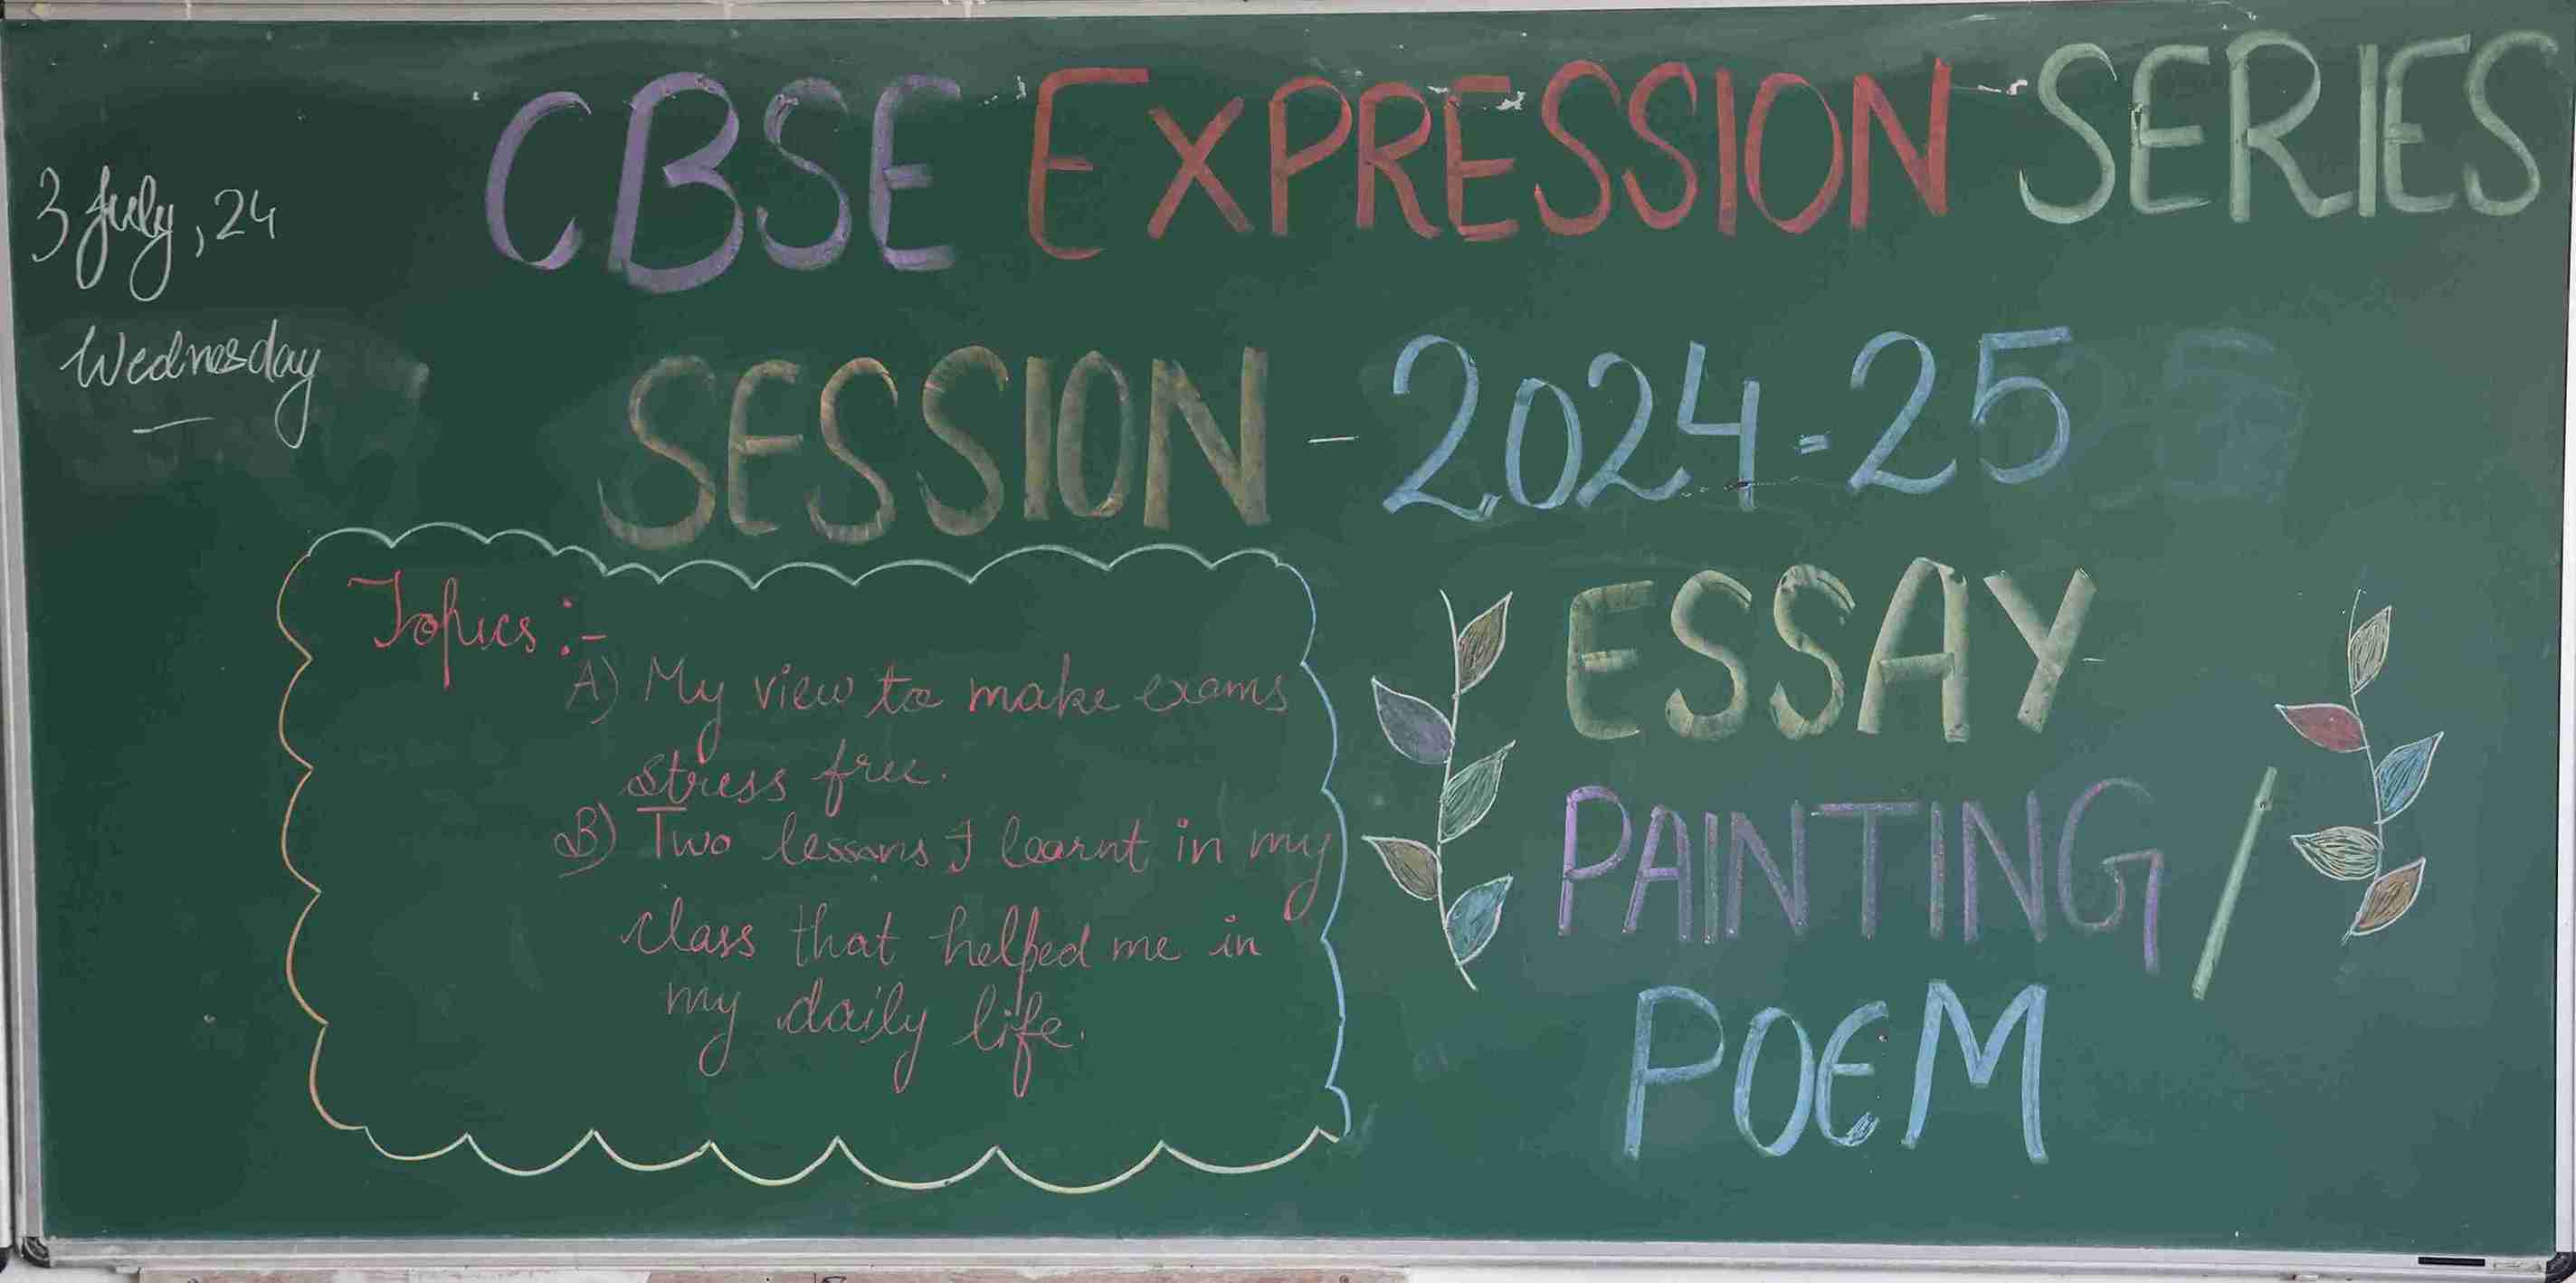 CBSE EXPRESSION SERIES
3 July, 24
Wednesday
SESSION - 2024-25
Topics :-
A) My view to make exams
stress free.
B) Two lessons I learnt in my
class that helped me in
my daily life.
ESSAY
PAINTING /
POEM